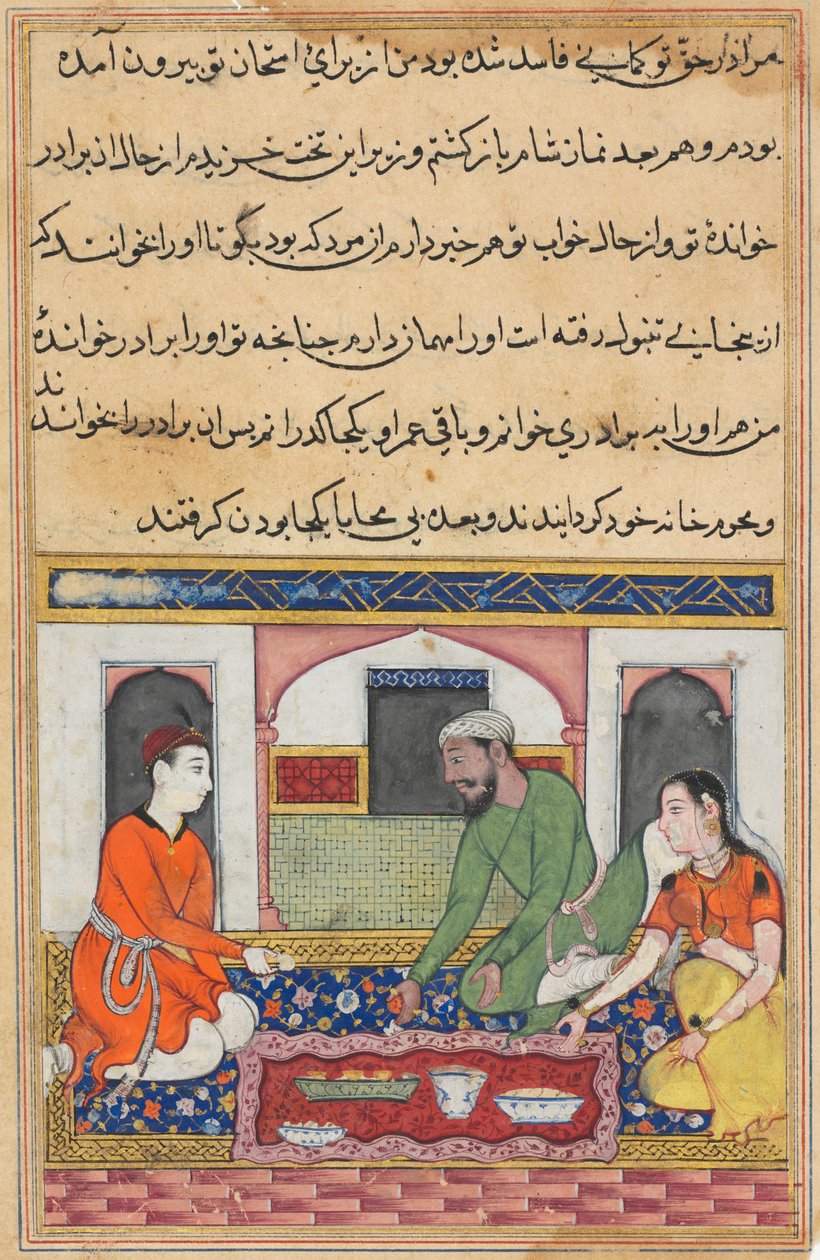 مرا در حقّ تو کمانی فاسد شده بود من از برای امتحان تو بیرون آمده
بودم و هم بعد نماز شام باز کشتم و زیر این تخت خزیدم از حال ان برادر
خواندهٔ تو و از حال خواب تو هم خبر دارم ان مرد که بود بکو تا او را بخوانند که
از بجا پی تنبول رفته است او را مهمان دارم جنانجه تو او را برادر خواندهٔ
من هم او را به برادری خوانم و باقی عمر او یکجا کذرانم بس ان برادر را بخواندند
و محرم خانه خود کردانیدند و بعده بی محابا یکجا بودن کرفتند